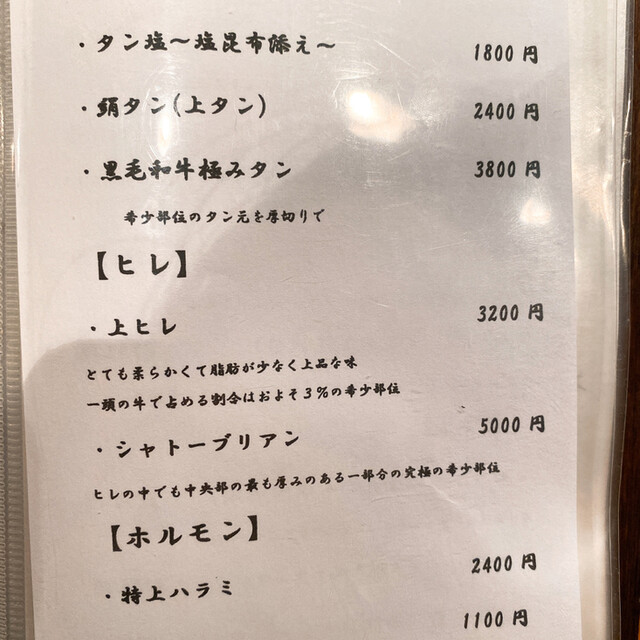 ・タン塩〜塩昆布添え〜 1800円
・絹タン(上タン) 2400円
・黒毛和牛極みタン 3800円
希少部位のタン元を厚切りで
【ヒレ】
・上ヒレ 3200円
とても柔らかくて脂肪が少なく上品な味
一頭の牛で占める割合はおよそ3%の希少部位
・シャトーブリアン 5000円
ヒレの中でも中央部の最も厚みのある一部分の究極の希少部位
【ホルモン】
・特上ハラミ 2400円
1100円